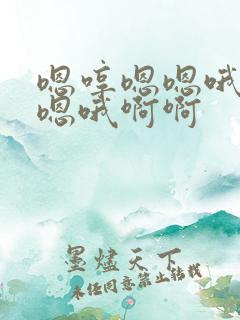 嗯哼嗯嗯哦
嗯哦啊啊
墨燼天下
未经同意禁止转载